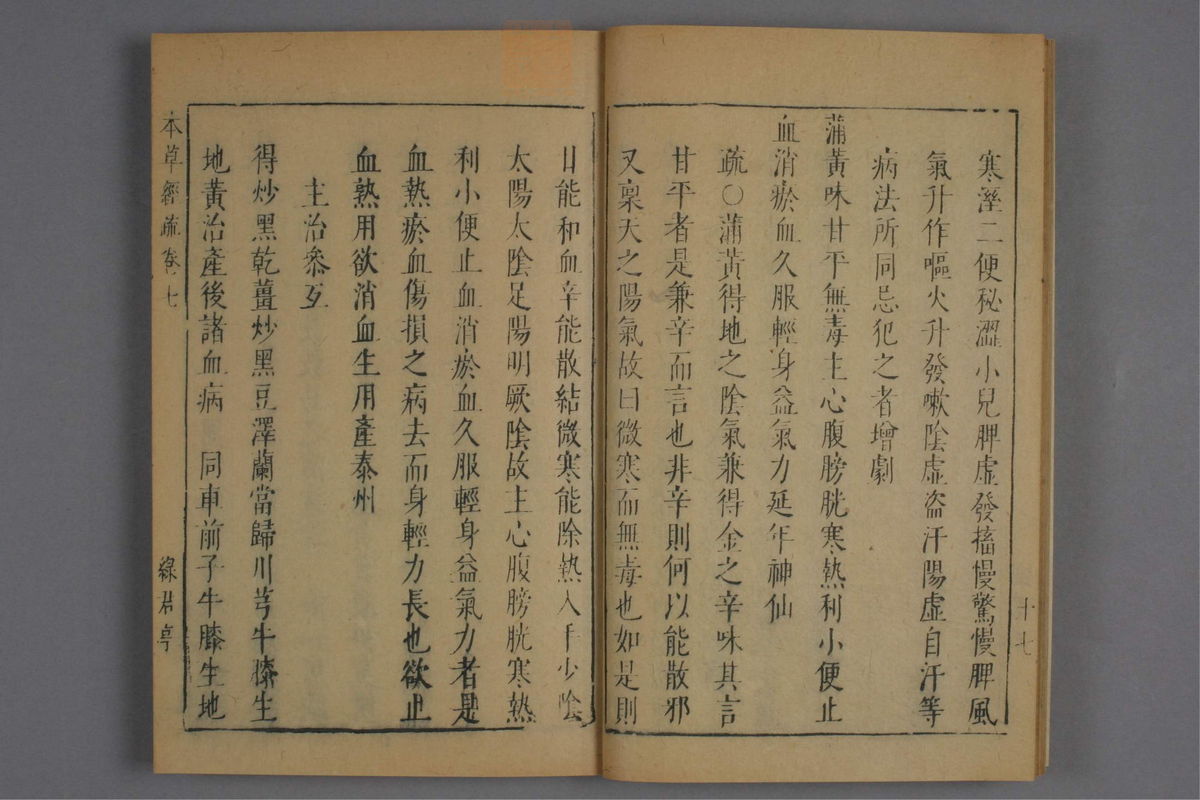 寒溼二便秘澀小兒脾虛發搐慢驚慢脾風
氣升作嘔火升發嗽陰虛盗汗陽虛自汗等
病法所同忌犯之者增劇
蒲黃味甘平無毒主心腹膀胱寒熱利小便止
血消瘀血久服輕身益氣力延年神仙
疏○蒲黃得地之陰氣兼得金之辛味其言
甘平者是兼辛而言也非辛則何以能散邪
又稟天之陽氣故曰微寒而無毒也如是則
十七
甘能和血辛能散結微寒能除熱入手少陰
太陽太陰足陽明厥陰故主心腹膀胱寒熱
利小便止血消瘀血久服輕身益氣力者是
血熱瘀血傷損之病去而身輕力長也欲止
血熟用欲消血生用產泰州
主治參互
得炒黑乾薑炒黑豆澤蘭當歸川芎牛膝生
地黃治產後諸血病 同車前子牛膝生地
本草經疏卷七
綠君亭